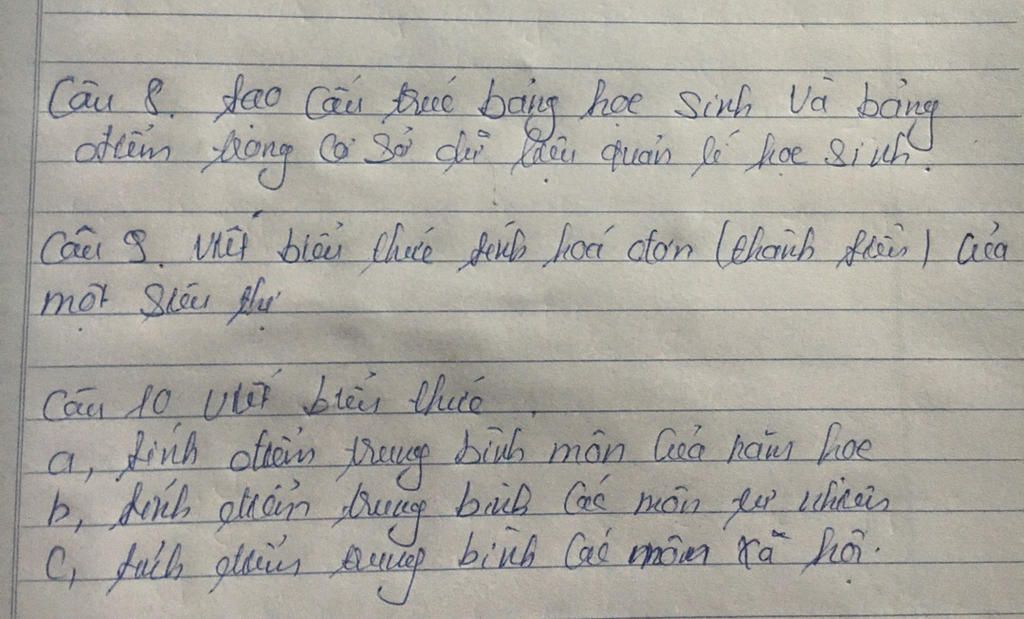 Câu 8. tạo Cấu trúc bảng học sinh và bảng
điểm trong cơ sở dữ liệu quản lí học sinh.
Câu 9. viết biểu thức tính hoá đơn (thành tiền) của
một siêu thị
Câu 10 viết biểu thức.
a, tính điểm trung bình môn của năm học
b, tính điểm trung bình các môn tự nhiên
c, tính điểm trung bình các môn xã hội.